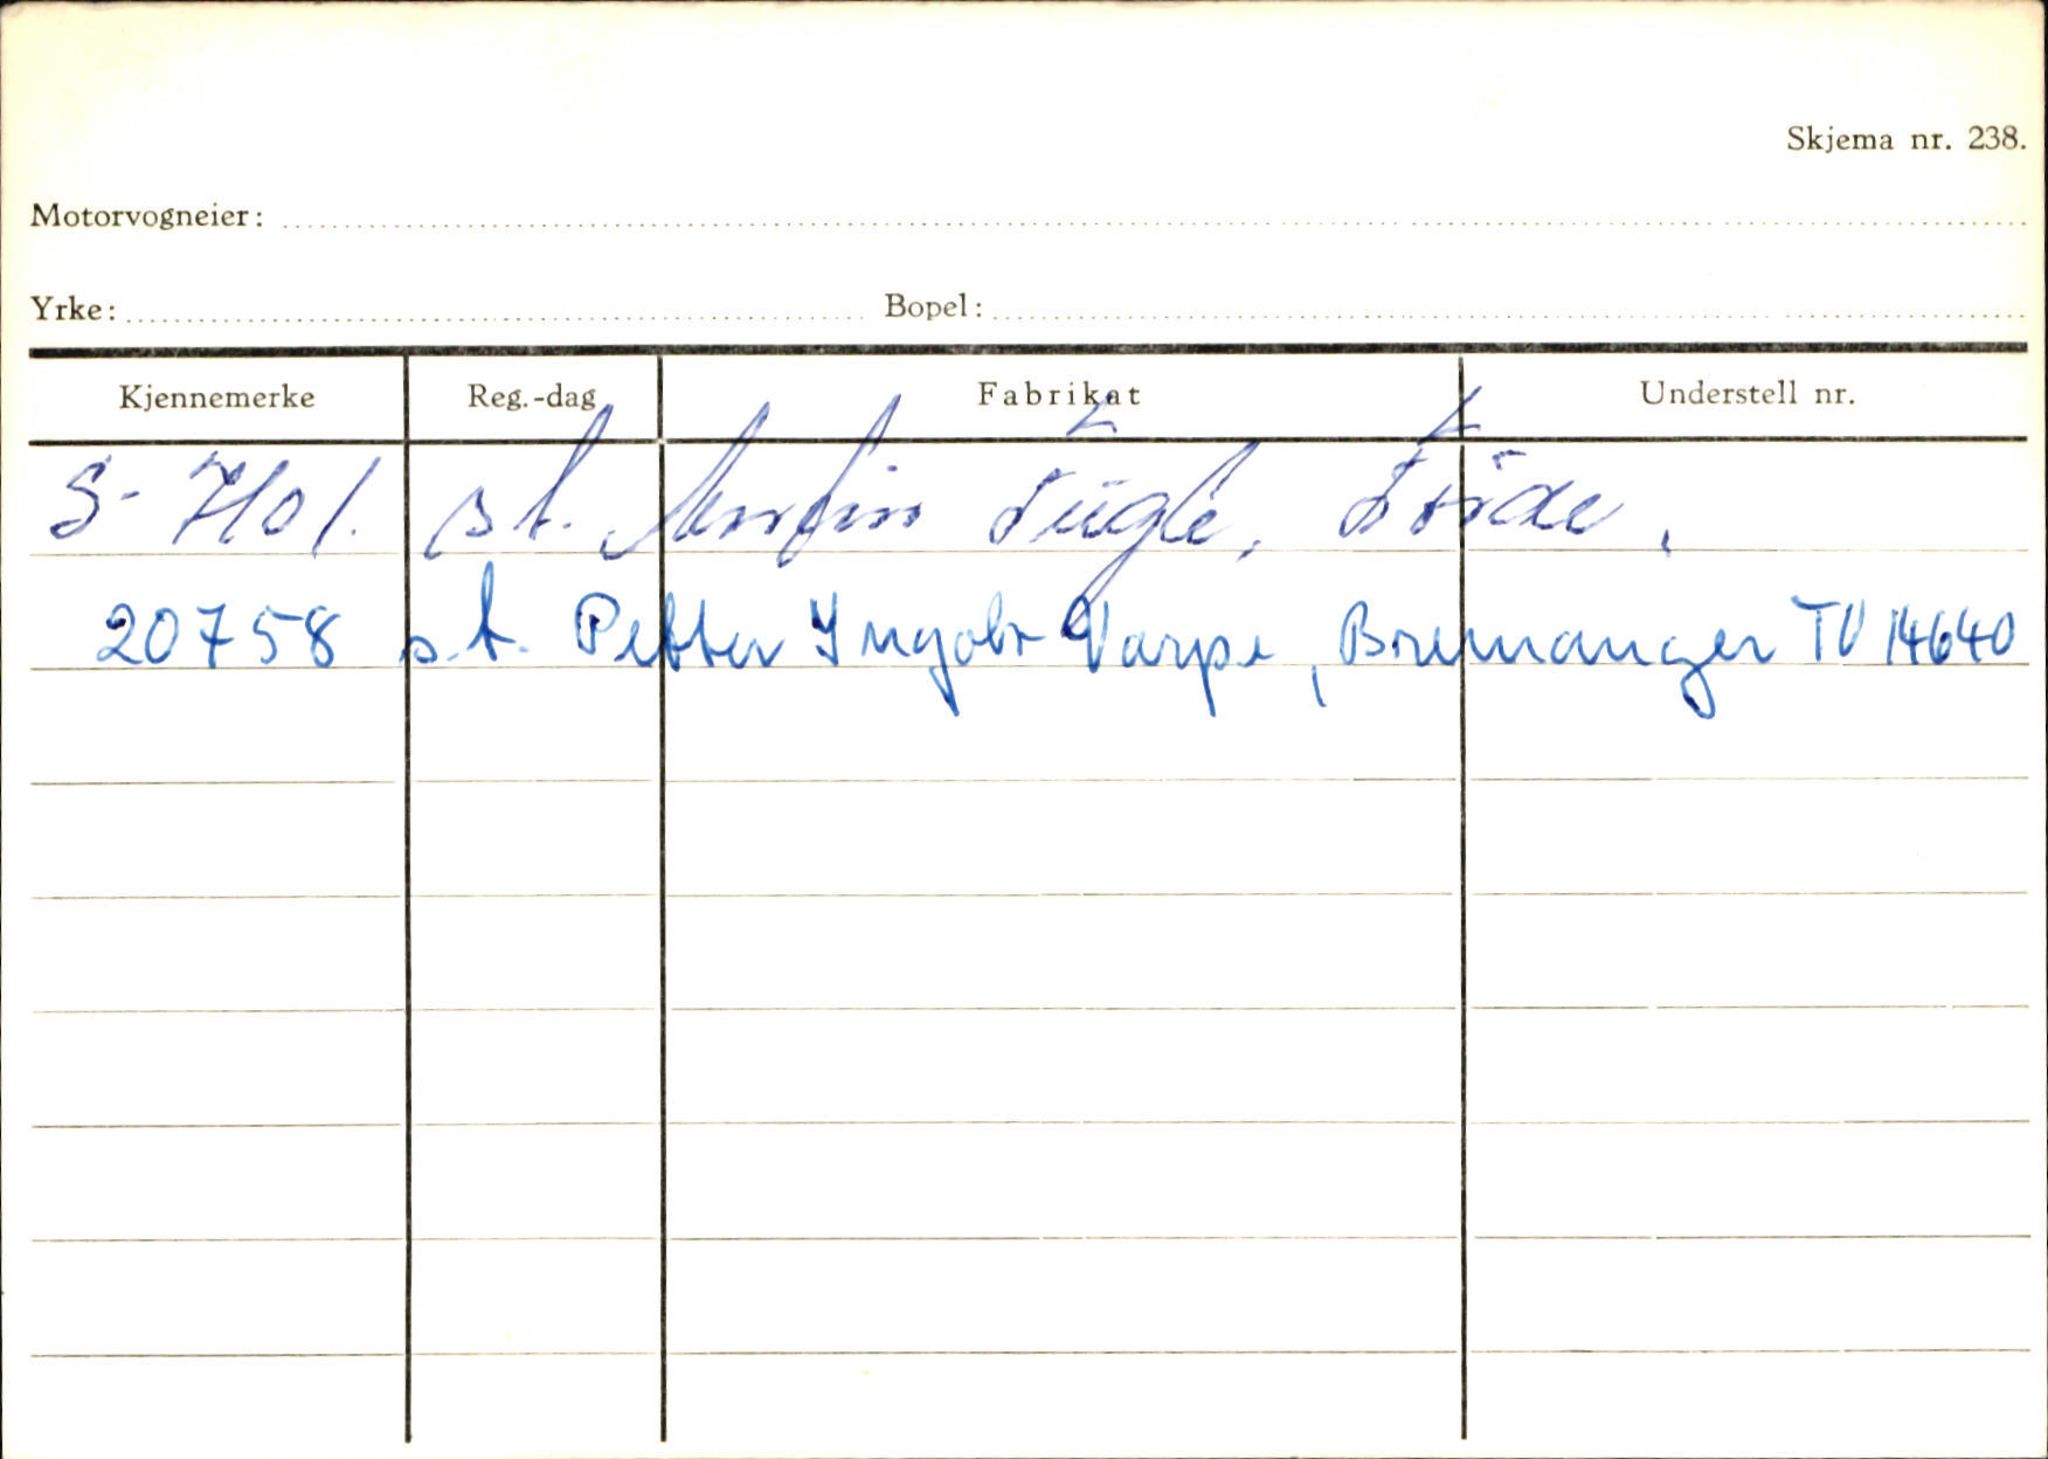 Skjema nr. 238.
Motorvogneier:
Yrke: Bopel:
Kjennemerke Reg.-dag Fabrikat Understell nr.
S- 7101. s.t. Anfin Fugle, Förde.
20758 s.t. Petter Ingolv Varpe, Bremanger TU 14640